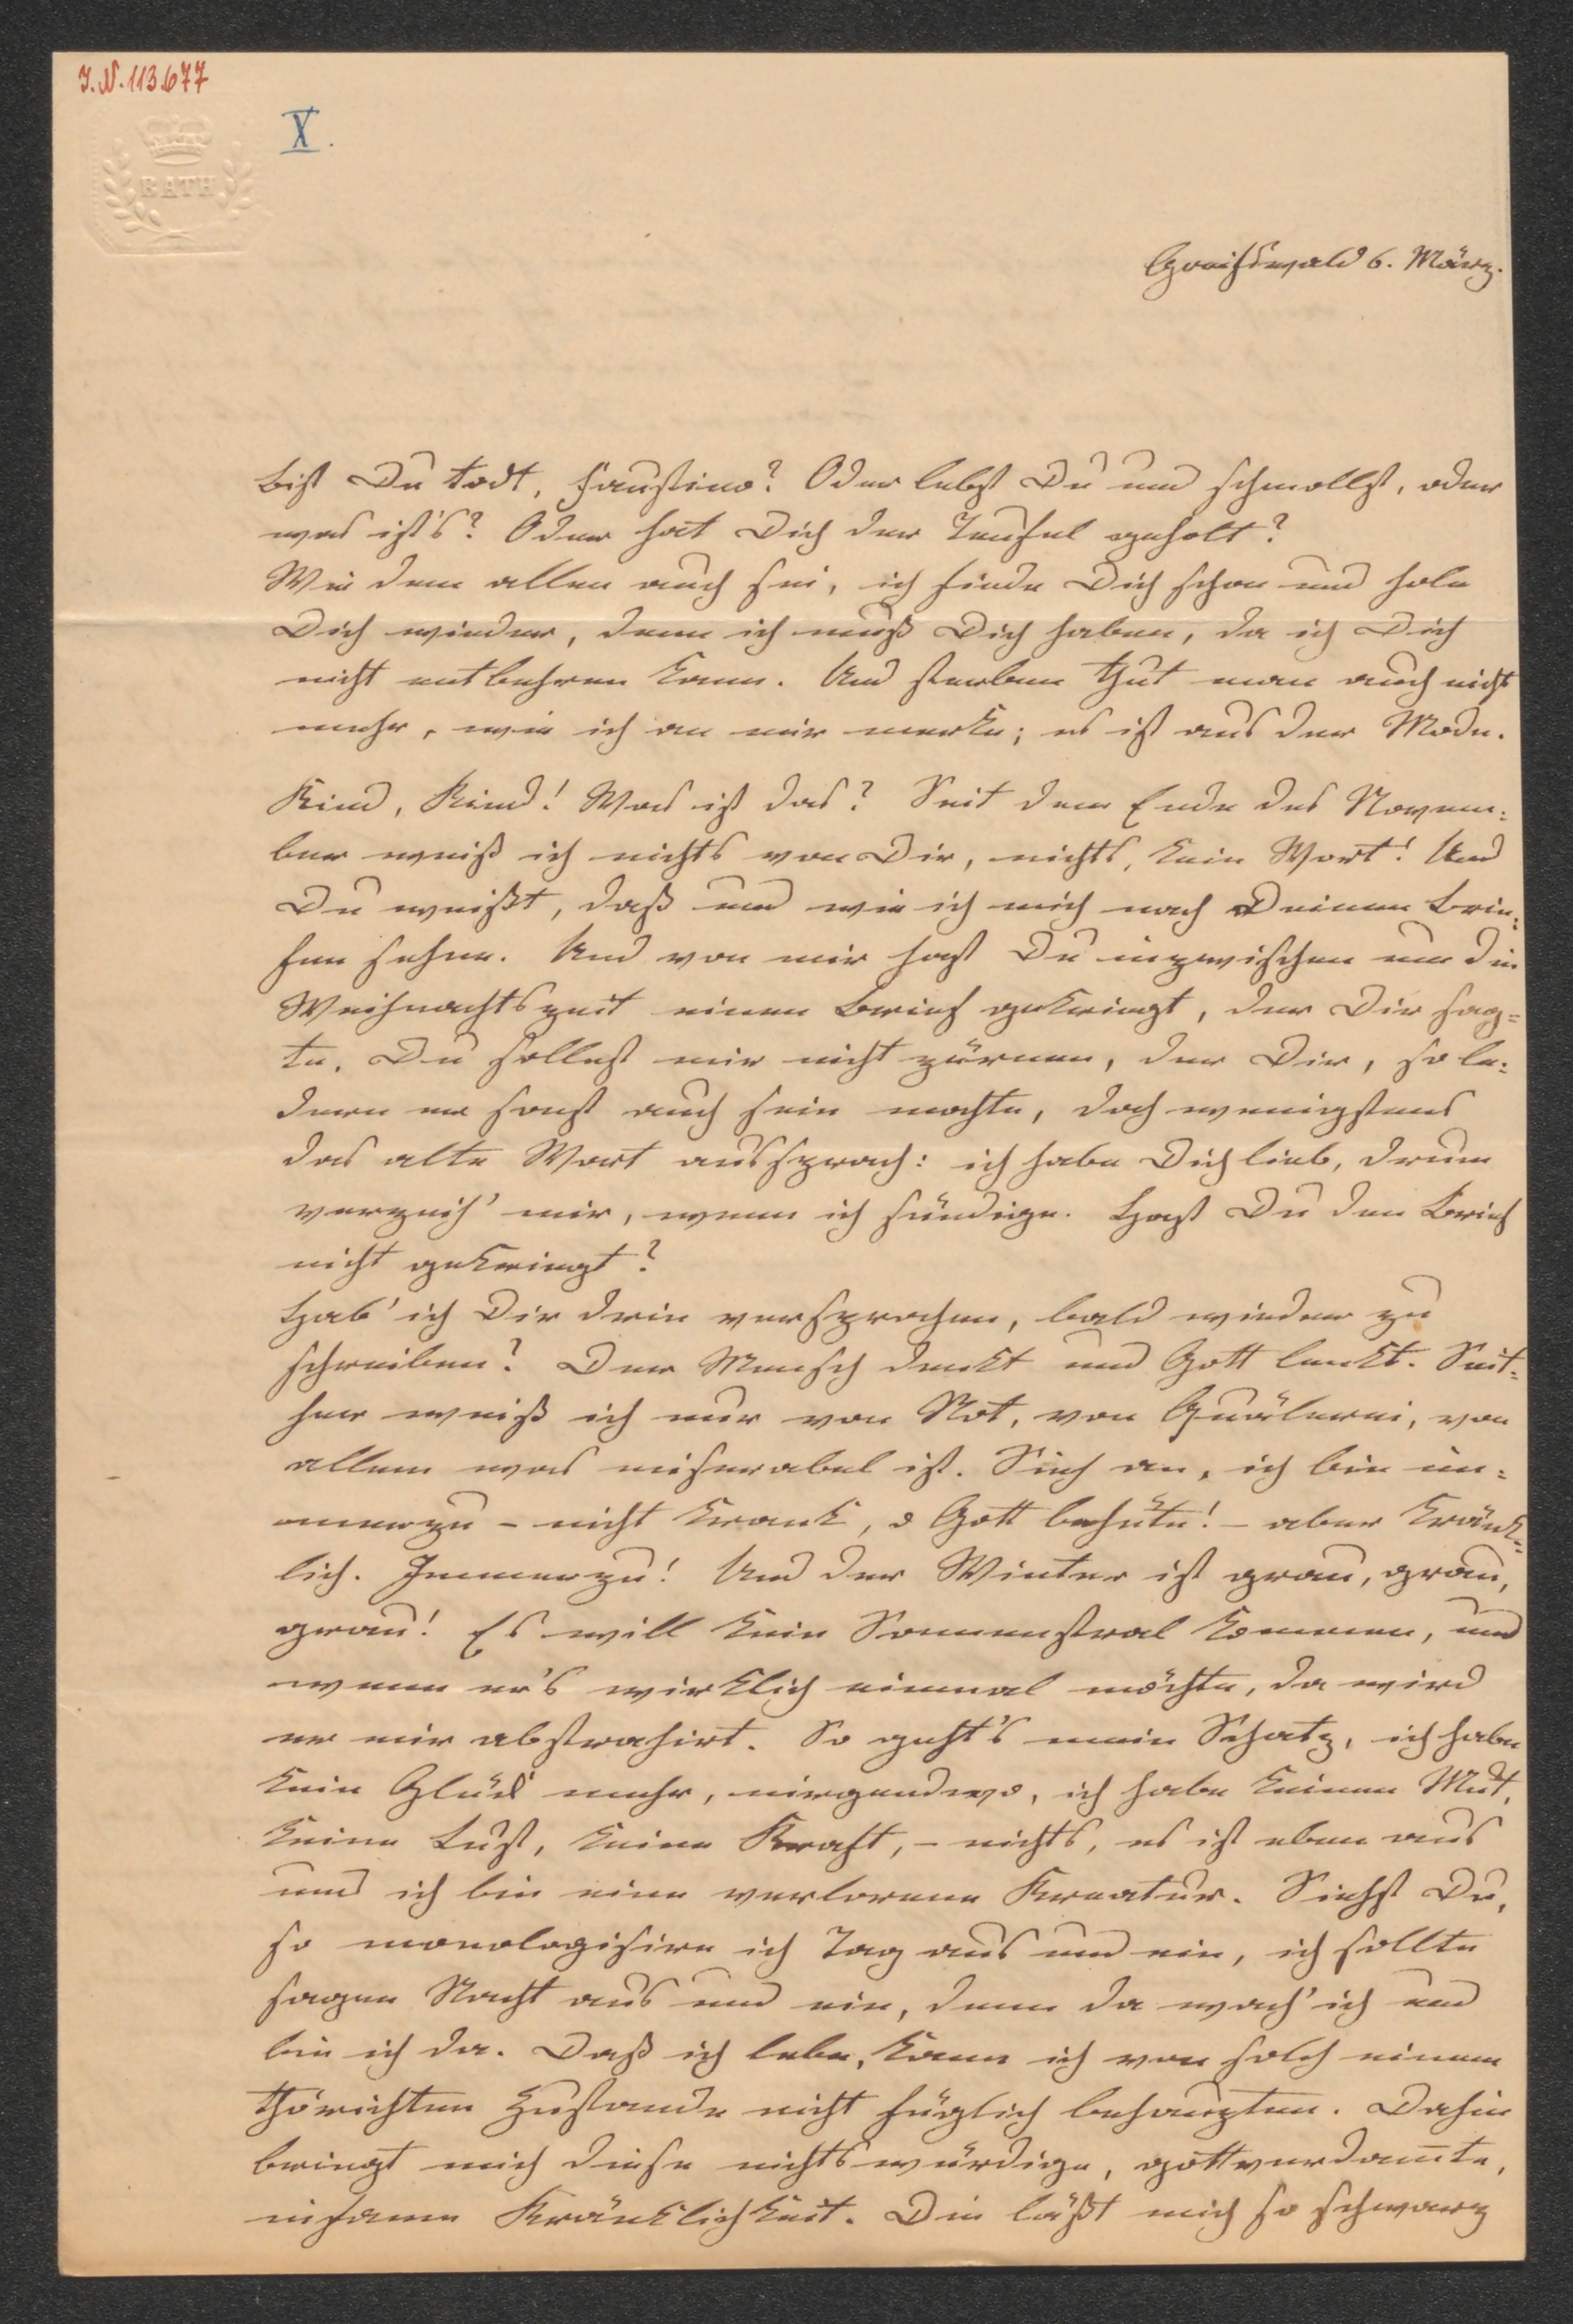 I.N. 113.677
X.
BATH
Greifswald 6. März.
Bist Du todt, Faustino? Oder lebst Du und schmollst, oder
was ist's? Oder hat Dich der Teufel geholt?
Wie dem allen auch sei, ich finde Dich schon und hole
Dich wieder, denn ich muß Dich haben, da ich Dich
nicht entbehren kann. Und sterben thut man auch nicht
mehr, wie ich an mir merke; es ist aus der Mode.
Kind, Kind! Was ist das? Seit dem Ende des Novem:
ber weiß ich nichts von Dir, nichts, kein Wort! Und
Du weißt, daß und wie ich mich nach Deinen Brie:
fen sehne. Und von mir hast Du inzwischen um die
Weihnachtszeit einen Brief gekriegt, der Dir sag=
te, Du sollest mir nicht zürnen, der Dir, so le:
dern er sonst auch sein mochte, doch wenigstens
das alte Wort aussprach: ich habe Dich lieb, drum
verzeih' mir, wenn ich sündige. Hast Du den Brief
nicht gekriegt?
Hab' ich Dir drin versprochen, bald wieder zu
schreiben? Der Mensch denkt und Gott lenkt. Seit:
her weiß ich nur von Not, von Quälerei, von
allem was miserabel ist. Sieh an, ich bin im:
merzu – nicht krank, o Gott behüte! – aber kränk:
lich. Immerzu! Und der Winter ist grau, grau,
grau! Es will kein Sonnenstral kommen, und
wenn er's wirklich einmal möchte, da wird
er mir abstrahirt. So geht's mein Schatz, ich habe
kein Glück mehr, nirgendwo, ich habe keinen Mut,
keine Lust, keine Kraft, – nichts, es ist eben aus
und ich bin eine verlorene Kreatur. Siehst Du,
so monologisire ich Tag aus und ein, ich sollte
sagen Nacht aus und ein, denn da wach' ich und
bin ich da. Daß ich lebe, kann ich von solch einem
thörichten Zustande nicht füglich behaupten. Dahin
bringt mich diese nichtswürdige, gottverdam̅te,
infame Kränklichkeit. Die läßt mich so schwarz